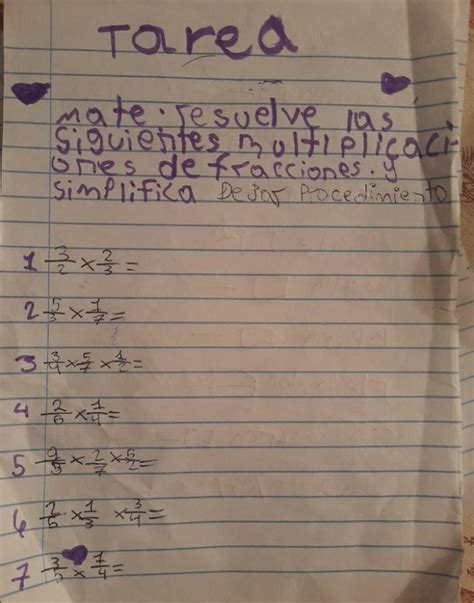 Tarea
Mate. resuelve las
siguientes multiplicaci-
ones de fracciones. y
simplifica Dejar Pocedimiento
1 3/2 x 2/3 =
2 5/3 x 1/7 =
3 3/4 x 5/7 x 1/2 =
4 2/5 x 1/4 =
5 9/5 x 2/7 x 5/2 =
6 2/5 x 1/3 x 3/4 =
7 x 7/4 =